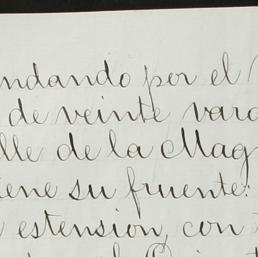 ndando por el
de veinte vara
lle de la Mag
iene su fruente:
estension, con